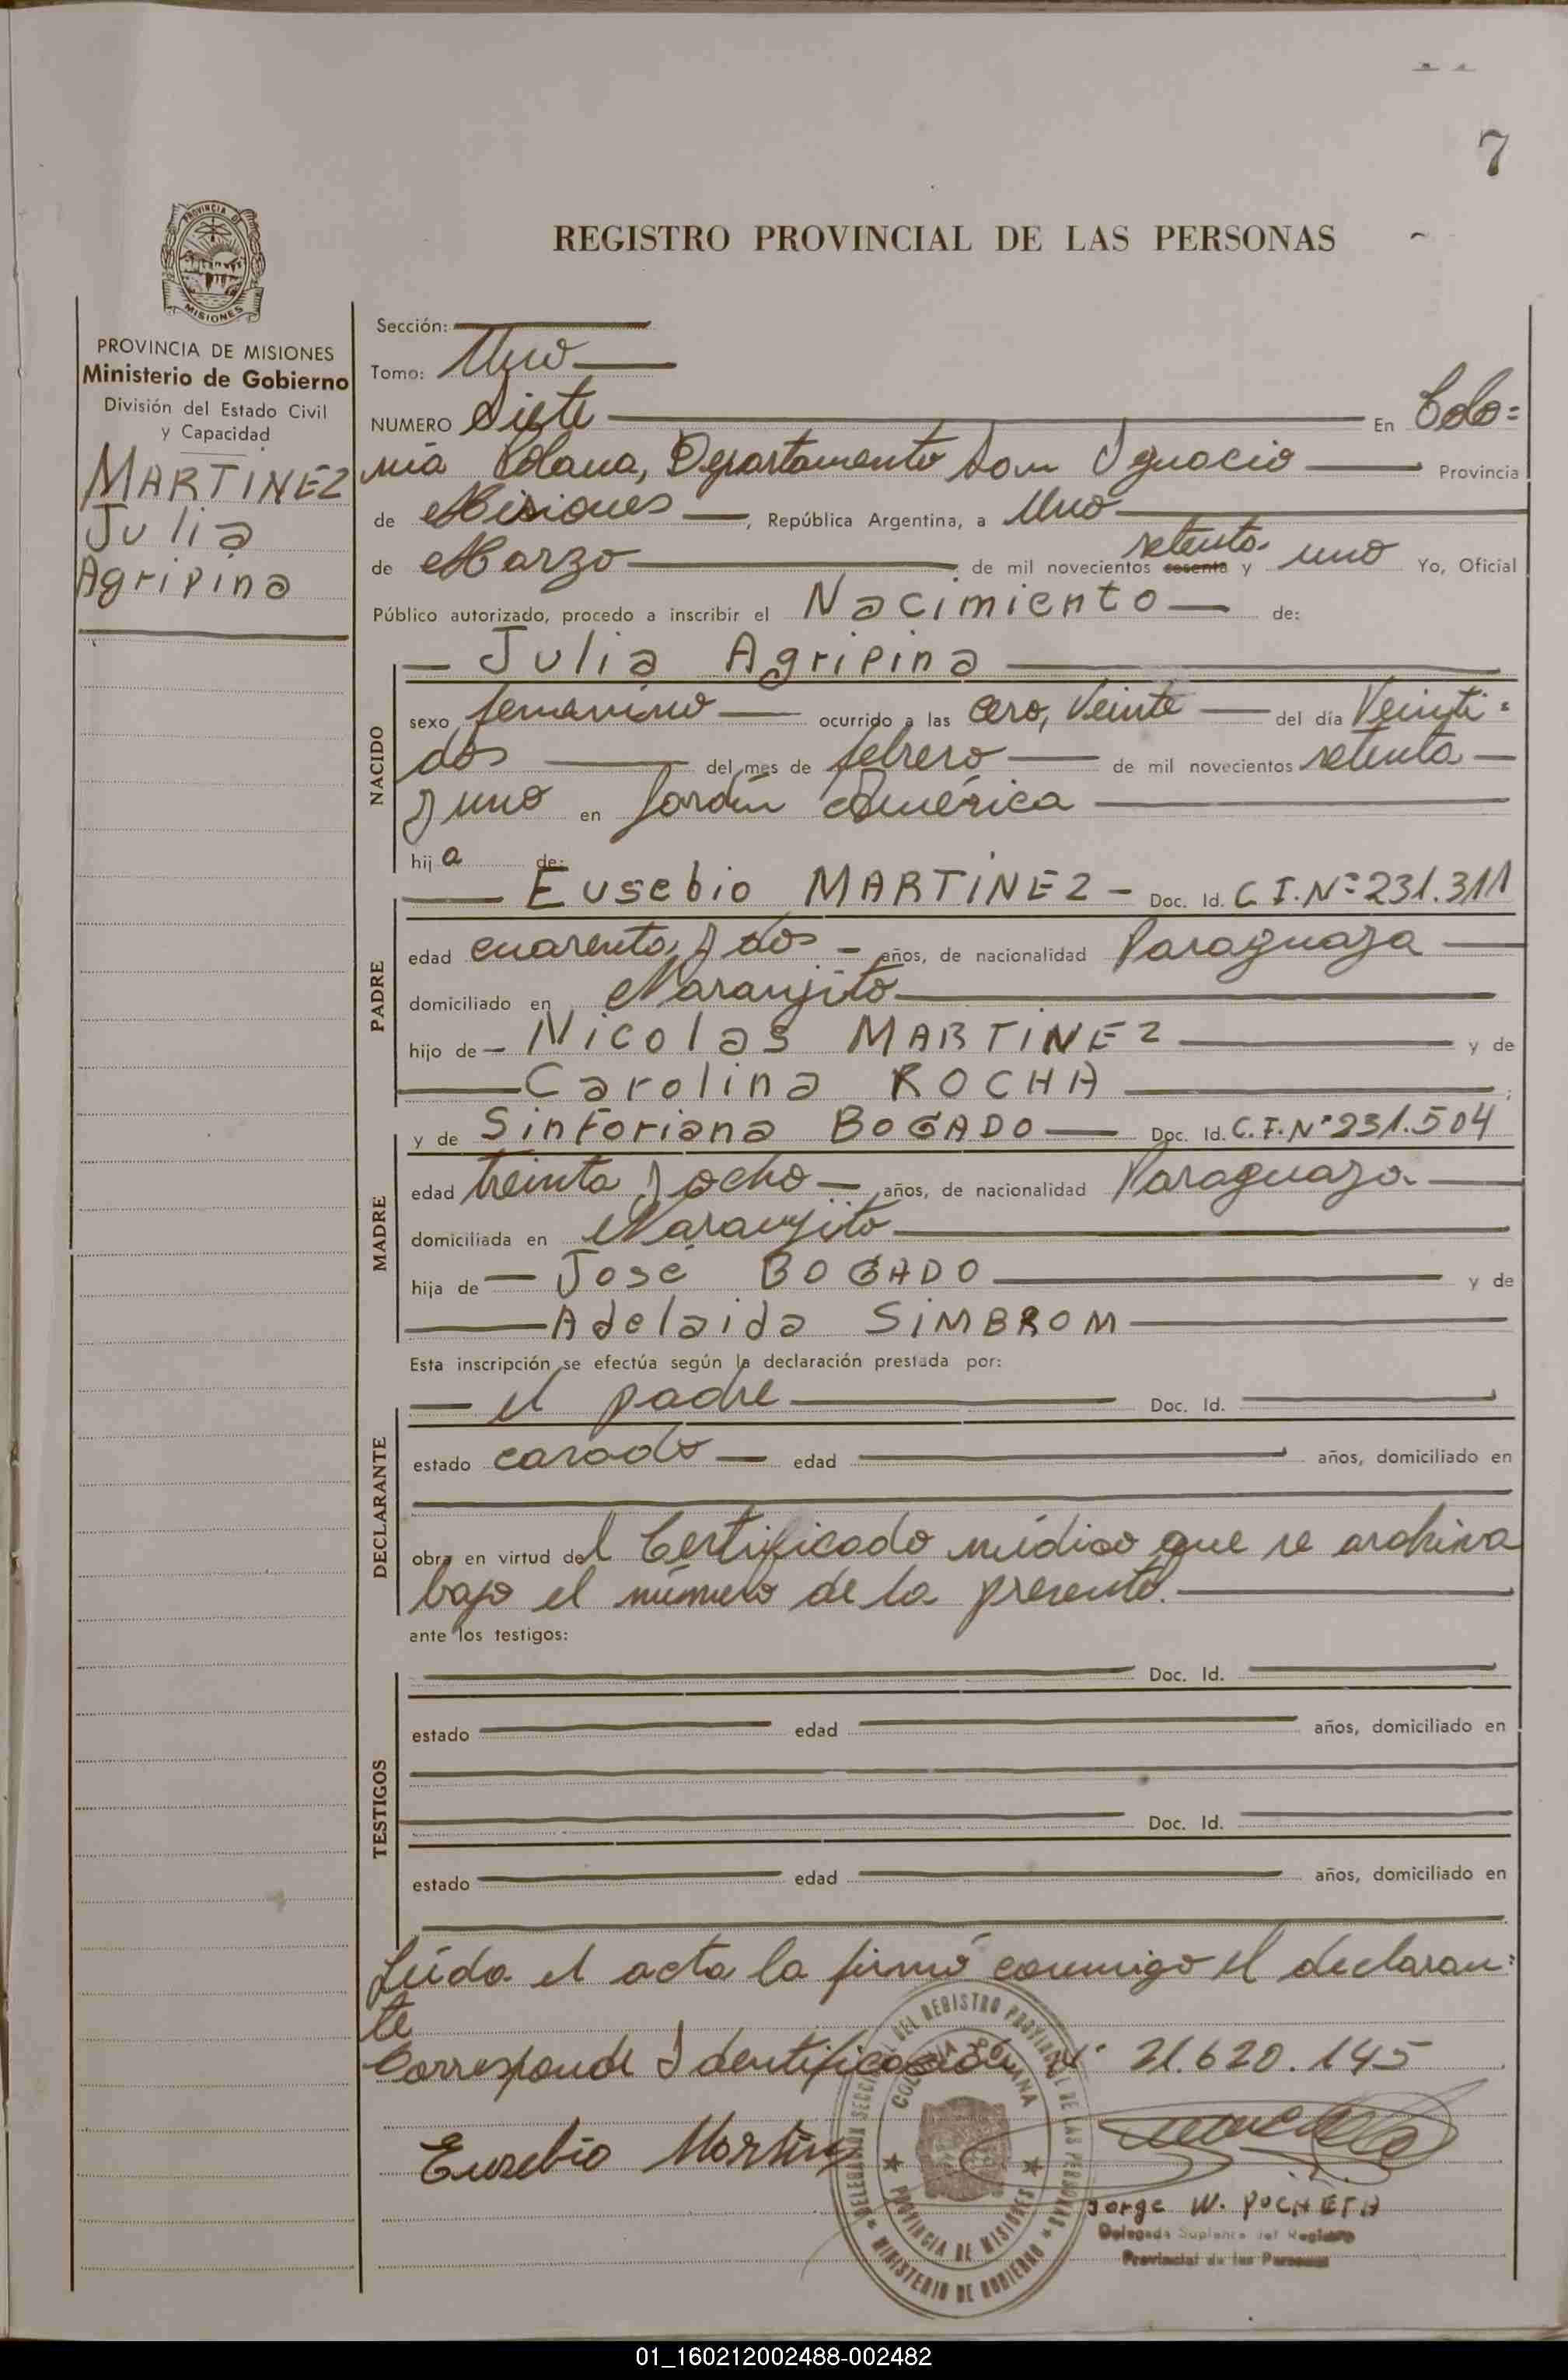 7
REGISTRO PROVINCIAL DE LAS PERSONAS
PROVINCIA DE
MISIONES
PROVINCIA DE MISIONES
Ministerio de Gobierno
División del Estado Civil
y Capacidad
MARTINEZ
Julia
Agripina
Sección:
Tomo: Uno
NUMERO Siete En Colo=
nia Polana, Departamento San Ignacio Provincia
de Misiones, República Argentina, a Uno
de Marzo de mil novecientos sesenta setenta y uno Yo, Oficial
Público autorizado, procedo a inscribir el Nacimiento de:
NACIDO
Julia Agripina
sexo femenino ocurrido a las cero, veinte del día Veinti=
dos del mes de febrero de mil novecientos setenta
y uno en Jardín América
hija de:
PADRE
Eusebio MARTINEZ - Doc. Id. C.I.Nº 231.311
edad cuarenta y dos años, de nacionalidad Paraguaya
domiciliado en Naranjito
hijo de Nicolas MARTINEZ y de
Carolina ROCHA ;
MADRE
y de Sinforiana BOGADO Doc. Id. C.I.Nº 231.504
edad treinta y ocho años, de nacionalidad Paraguaya
domiciliada en Naranjito
hija de José BOGADO y de
Adelaida SIMBROM
Esta inscripción se efectúa según la declaración prestada por:
DECLARANTE
el padre Doc. Id.
estado casado edad años, domiciliado en
obra en virtud del Certificado médico que se archiva
bajo el número de la presente.
ante los testigos:
TESTIGOS
Doc. Id.
estado edad años, domiciliado en
Doc. Id.
estado edad años, domiciliado en
Leída el acta la firmó conmigo el declaran=
te
Corresponde Identificación Nº 21.620.145
Eusebio Martinez
COLONIA POLANA
PROVINCIA DE MISIONES
MINISTERIO DE GOBIERNO
DEL REGISTRO PROVINCIAL DE LAS PERSONAS
Jorge W. POCHETA
Delegado Suplente del Registro
Provincial de las Personas
01_160212002488-002482